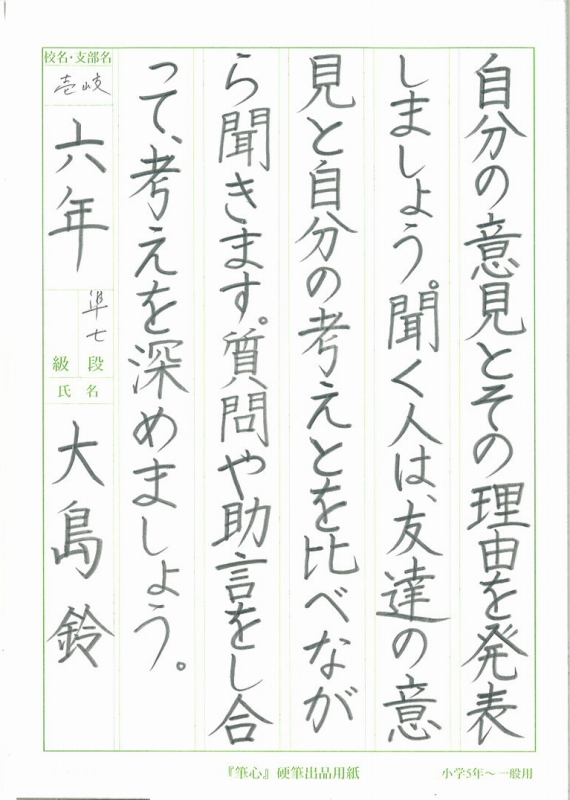 自分の意見とその理由を発表
しましょう。聞く人は、友達の意
見と自分の考えとを比べなが
ら聞きます。質問や助言をし合
って、考えを深めましょう。
校名・支部名
壱岐
六年
準七
段
級
氏名
大島鈴
『筆心』硬筆出品用紙
小学5年〜一般用